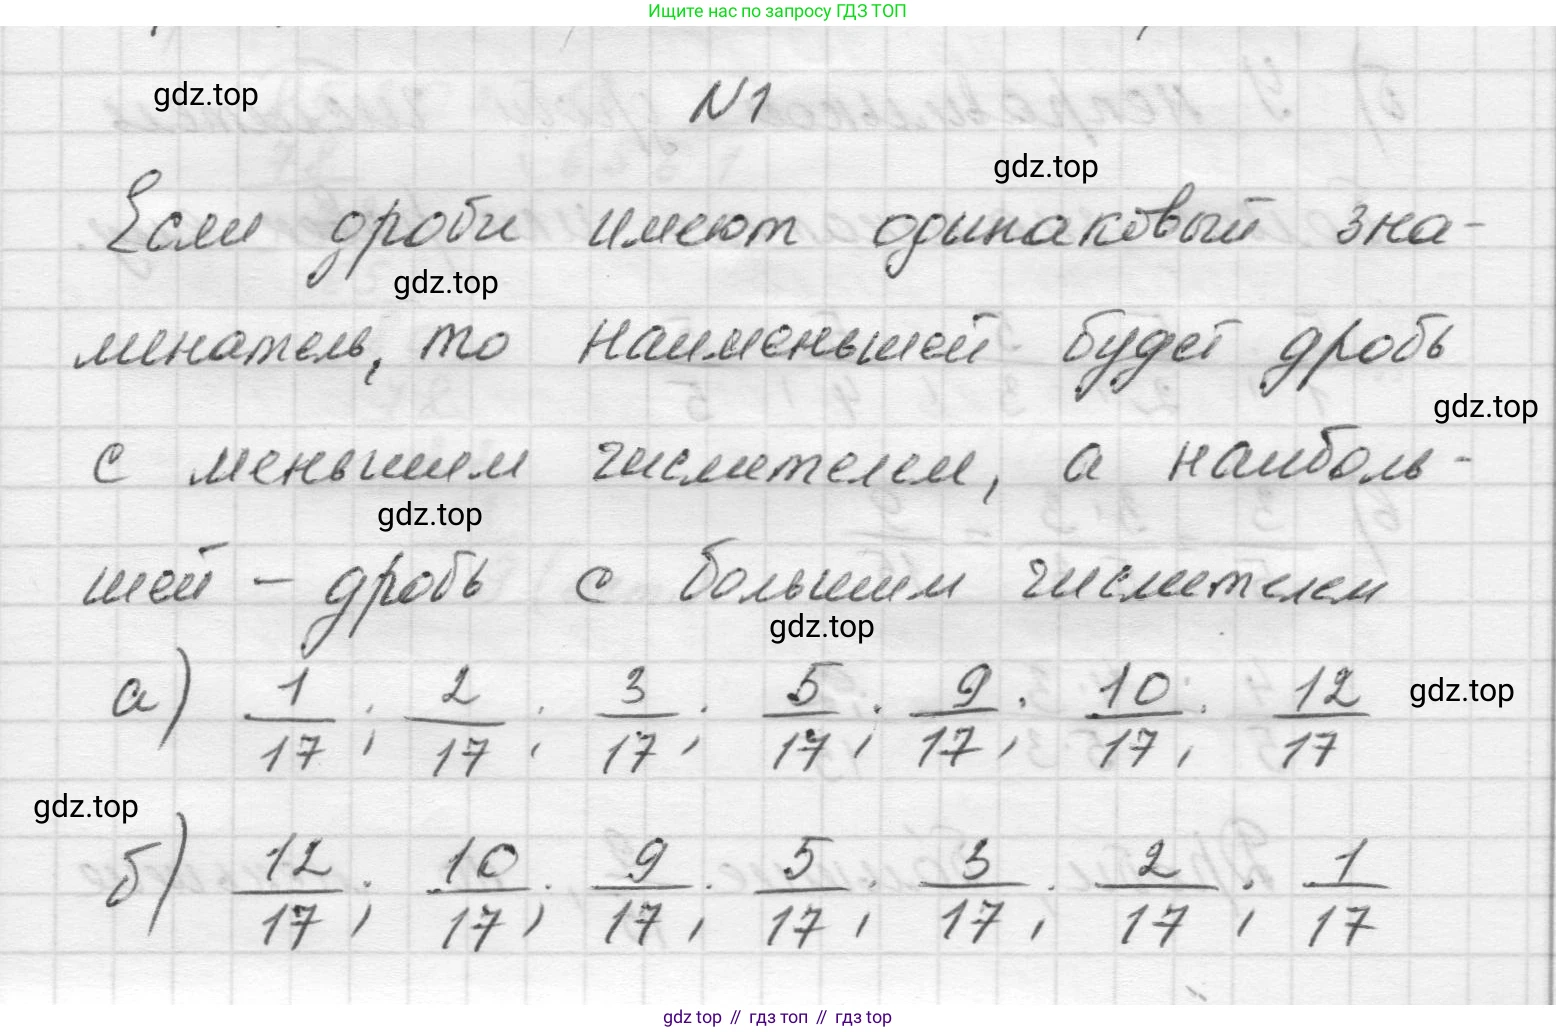 Ищите нас по запросу ГДЗ ТОП
gdz.top
N1
gdz.top
Если дроби имеют одинаковый зна-
gdz.top
менатель, то наименьшей будет дробь
gdz.top
с меньшим числителем, а наиболь-
gdz.top
шей – дробь с большим числителем
gdz.top
а) 1/17; 2/17; 3/17; 5/17; 9/17; 10/17; 12/17
gdz.top
gdz.top
б) 12/17; 10/17; 9/17; 5/17; 3/17; 2/17; 1/17
gdz top // гдз топ // гдз top